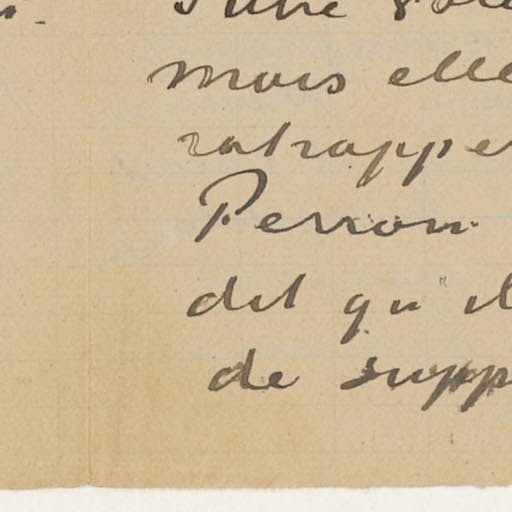 mais elle
ratrapper
Perron
dit qu'il
de supp